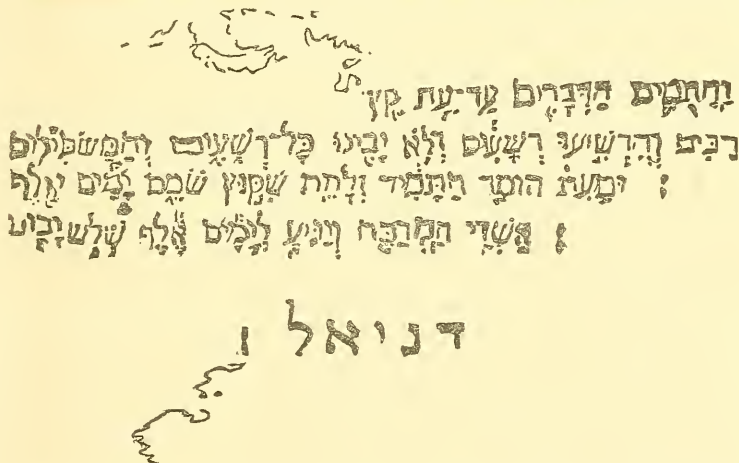 וַחֲתֻמִים הַדְּבָרִים עַד־עֵת קֵץ
רַבִּים וְהִרְשִׁיעוּ רְשָׁעִים וְלֹא יָבִינוּ כָּל־רְשָׁעִים וְהַמַּשְׂכִּילִים
׃ וּמֵעֵת הוּסַר הַתָּמִיד וְלָתֵת שִׁקּוּץ שֹׁמֵם יָמִים אֶלֶף
׃ אַשְׁרֵי הַמְחַכֶּה וְיַגִּיעַ לְיָמִים אֶלֶף שְׁלֹשׁ
דניאל ו